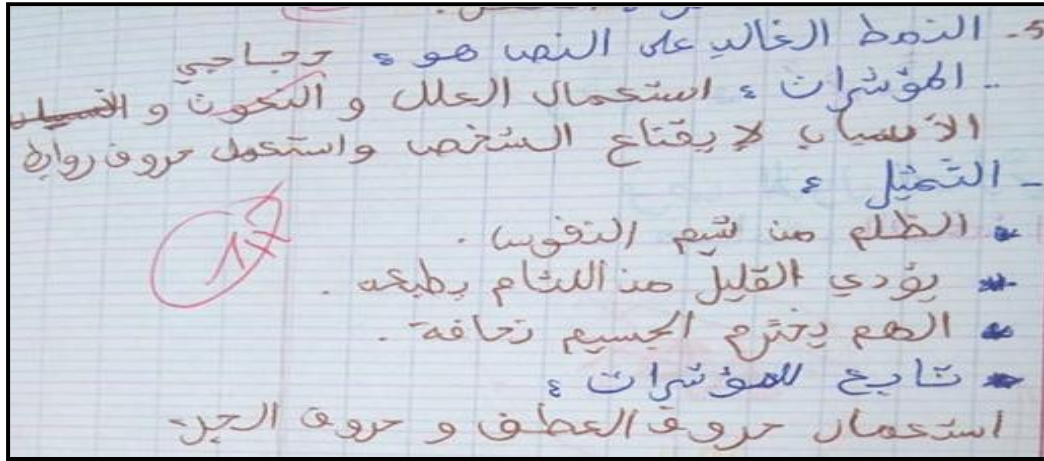 5- النمط الغالب على النص هو : حجاجي
- المؤشرات : استعمال العلل و النعوت و
الأسباب لإقناع الشخص واستعمل حروف روابط
- التمثيل :
* الظلم من شيم النفوس .
* يؤدي القليل من اللئام بطبعه .
* الهم يخترم الجسيم نحافة .
* تابع للمؤشرات :
استعمال حروف العطف و حروف الجر.